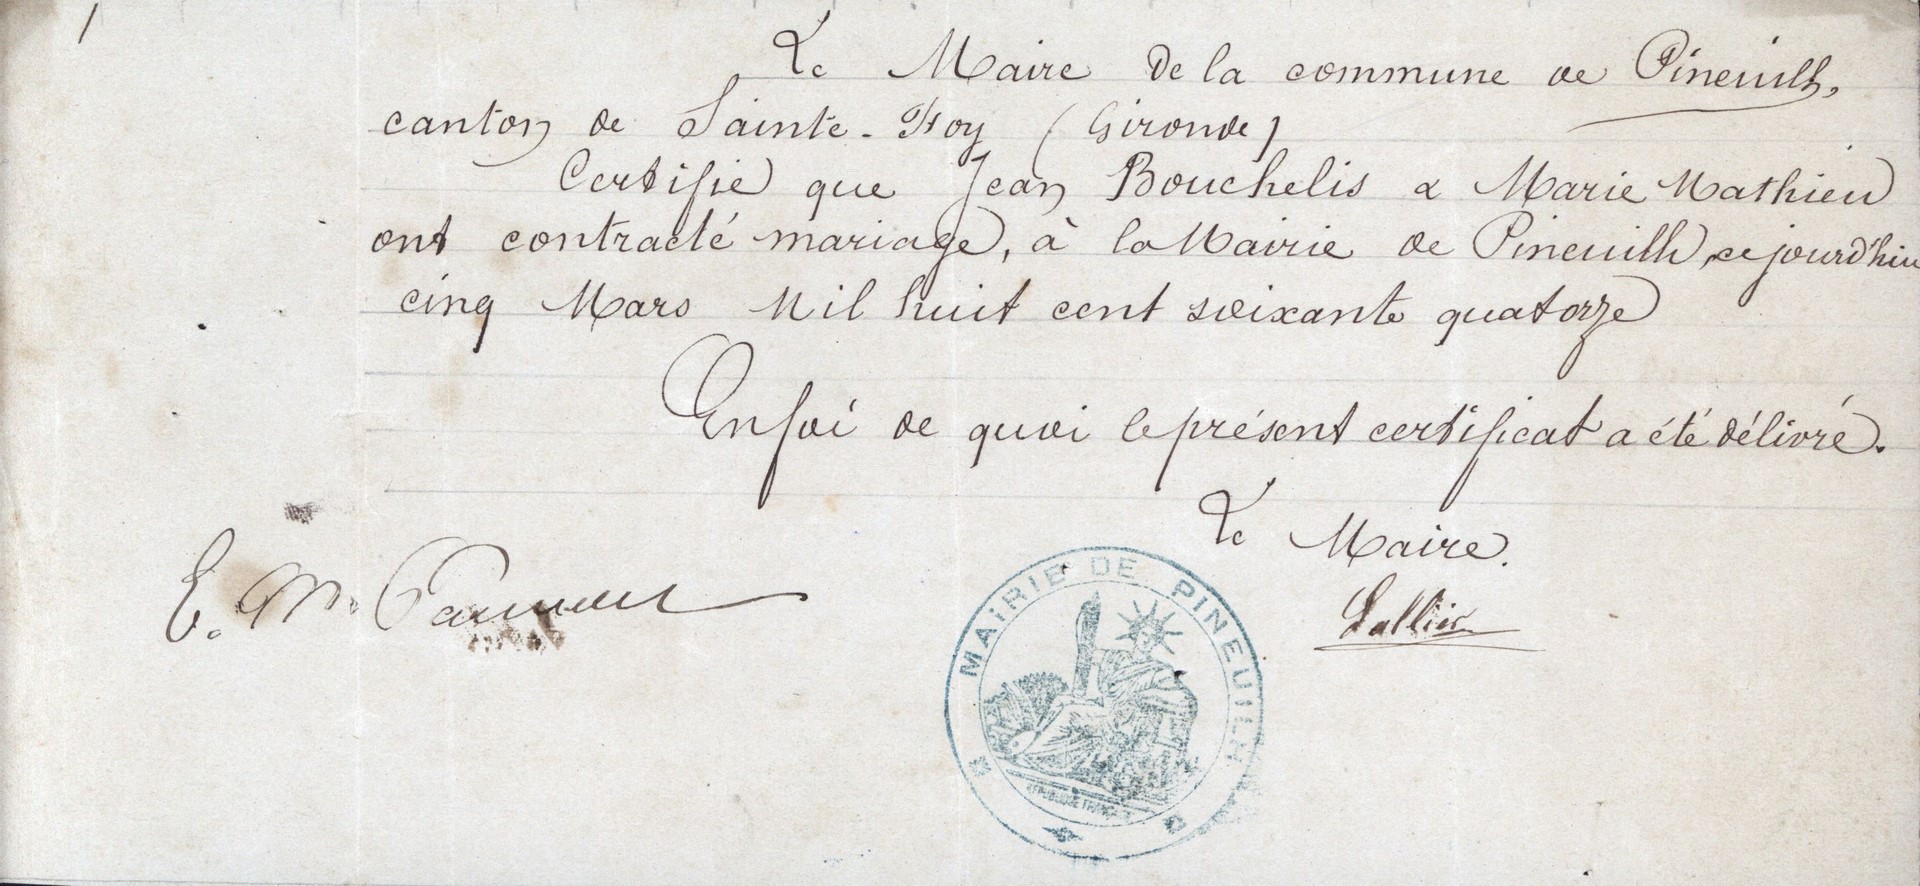 1
Le Maire de la commune de Pineuilh,
canton de Sainte-Foy (Gironde)
Certifie que Jean Bouchelis & Marie Mathieu
ont contracté mariage, à la Mairie de Pineuilh, ce jourd'hui
cinq Mars Mil huit cent soixante quatorze
En foi de quoi le présent certificat a été délivré.
Le Maire.
Lallier
E. M.
MAIRIE DE PINEUILH
REPUBLIQUE FRANÇAISE